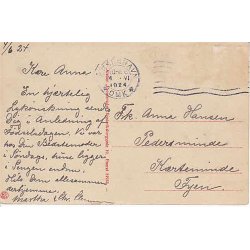 1/6 24
Kære Anna
En hjertelig
Lykønskning sendes
Dig i Anledning af
Fødselsdagen. Vi var
hos Bedstemoder
i Søndags, hun ligger
i Sengen endnu.
Hils dem allesammen
derhjemme.
KØBENHAVN
1924
Frk. Anna Hansen
Pedersminde
Kerteminde
Fyen